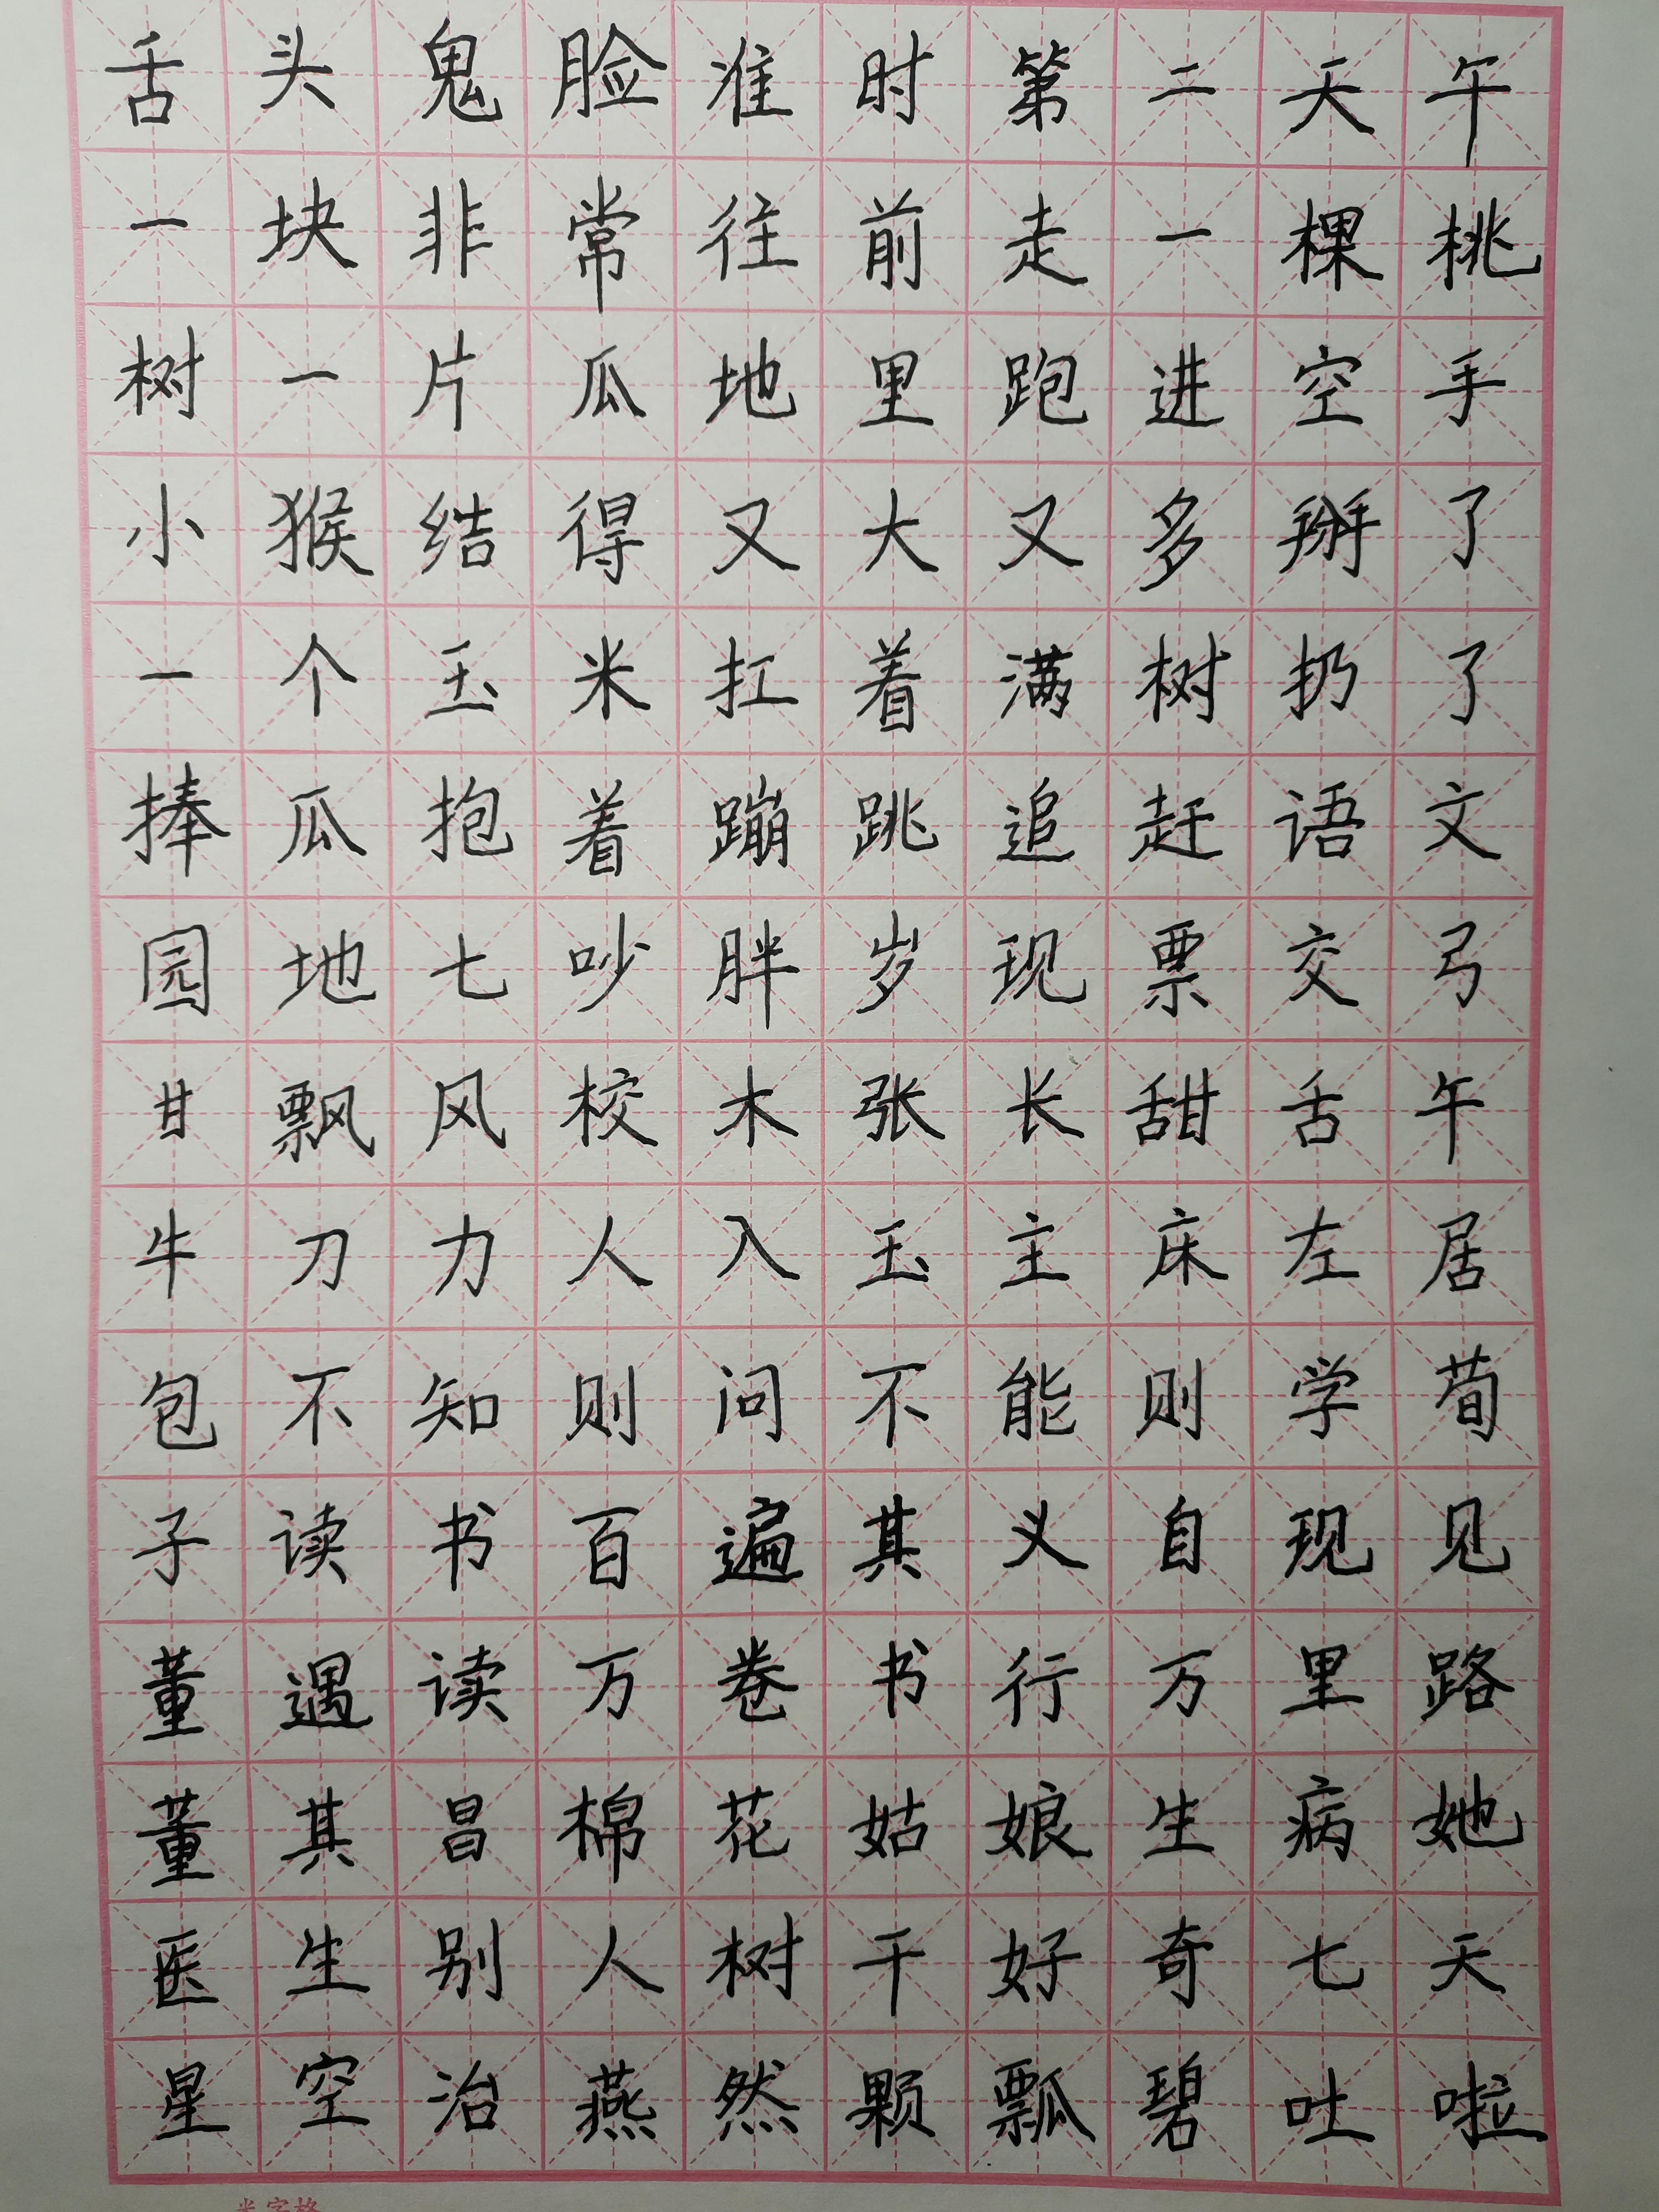 舌头鬼脸准时第二天午
一块非常往前走一棵桃
树一片瓜地里跑进空手
小猴结得又大又多掰了
一个玉米扛着满树扔了
捧瓜抱着蹦跳追赶语文
园地七吵胖岁现票交弓
甘飘风校木张长甜舌午
牛刀力人入玉主床左居
包不知则问不能则学荀
子读书百遍其义自现见
董遇读万卷书行万里路
董其昌棉花姑娘生病她
医生别人树干好奇七天
星空治燕然颗瓢碧吐啦
米字格